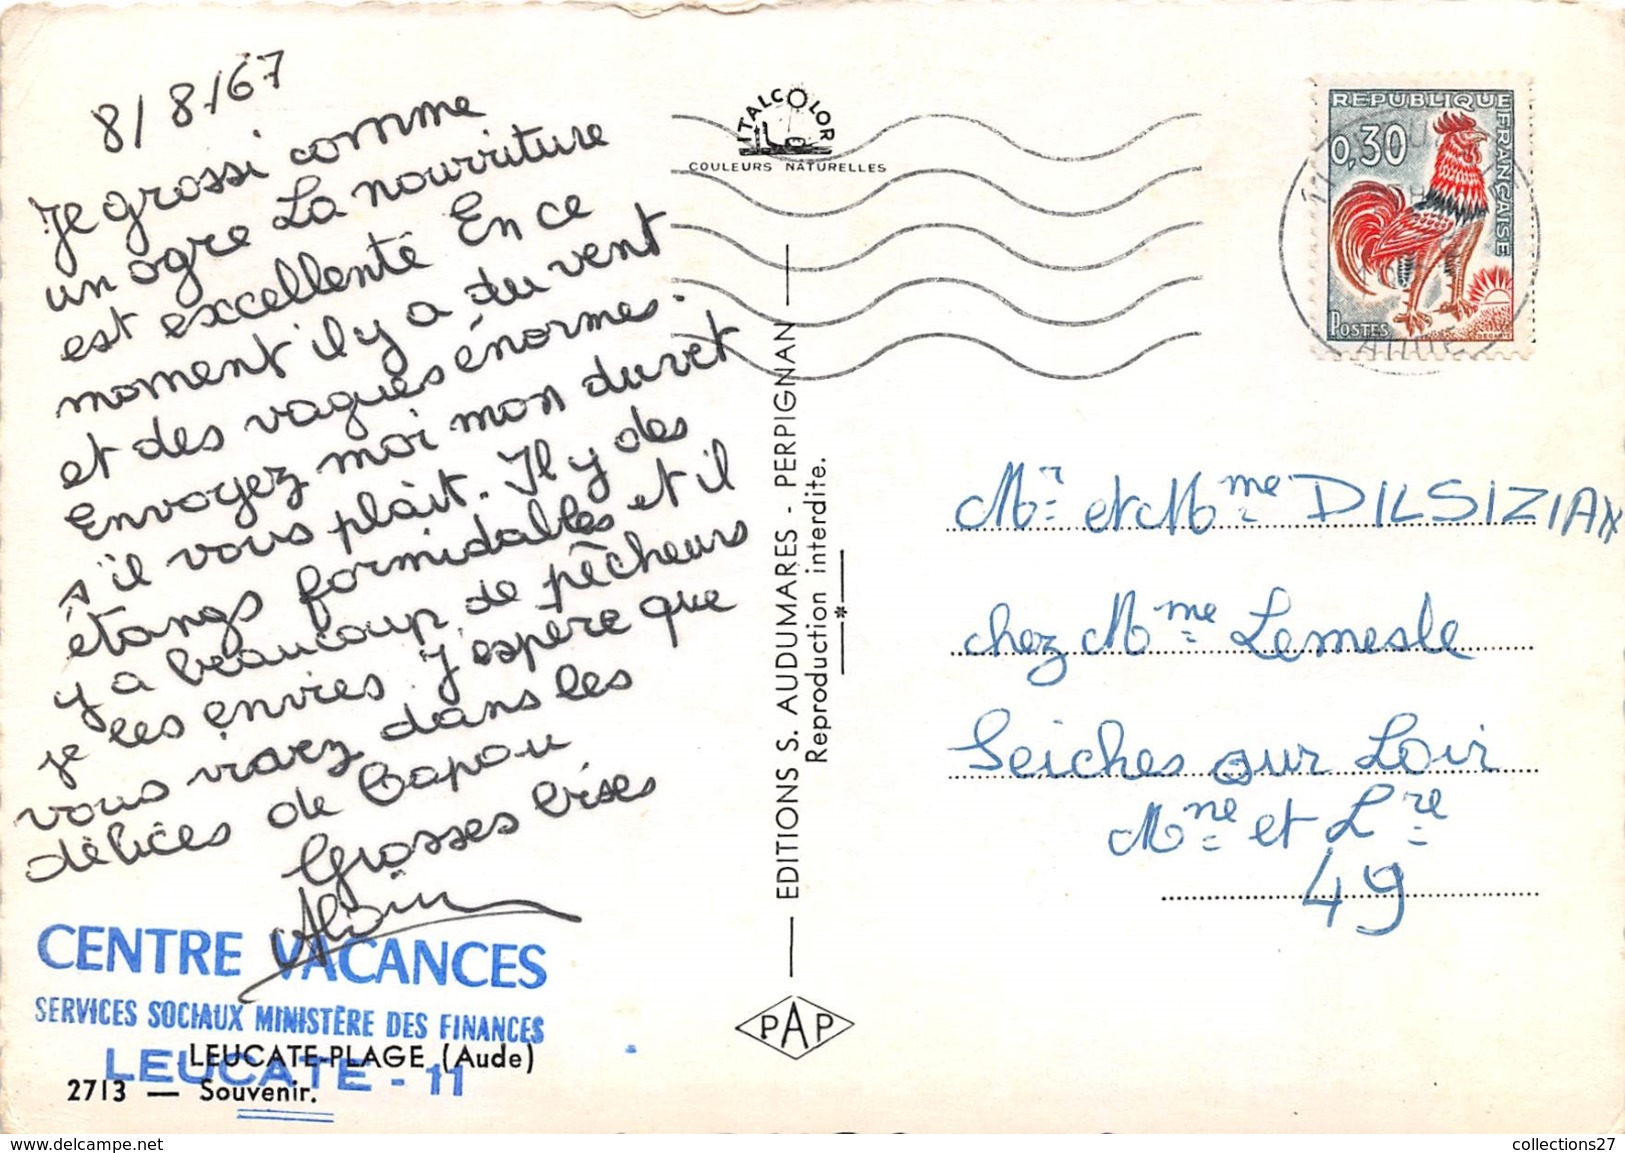 8/8/67
Je grossi comme
un ogre La nourriture
est excellente En ce
moment il y a du vent
et des vagues énormes.
Envoyez moi mon duvet
s'il vous plaît. Il y des
étangs formidables et il
y a beaucoup de pêcheurs
je les envies. J'espère que
vous dans les
délices de Capou
Grosses bises
Alain
CENTRE VACANCES
SERVICES SOCIAUX MINISTÈRE DES FINANCES
LEUCATE - 11
LEUCATE-PLAGE (Aude)
2713 — Souvenir.
ITALCOLOR
COULEURS NATURELLES
EDITIONS S. AUDUMARES - PERPIGNAN
Reproduction interdite.
PAP
REPUBLIQUE FRANÇAISE
0,30
POSTES
AUDE
Mr et Mme DILSIZIAN
chez Mme Lemesle
Seiches sur Loir
Mne et Lre
49
collections27
www.delcampe.net